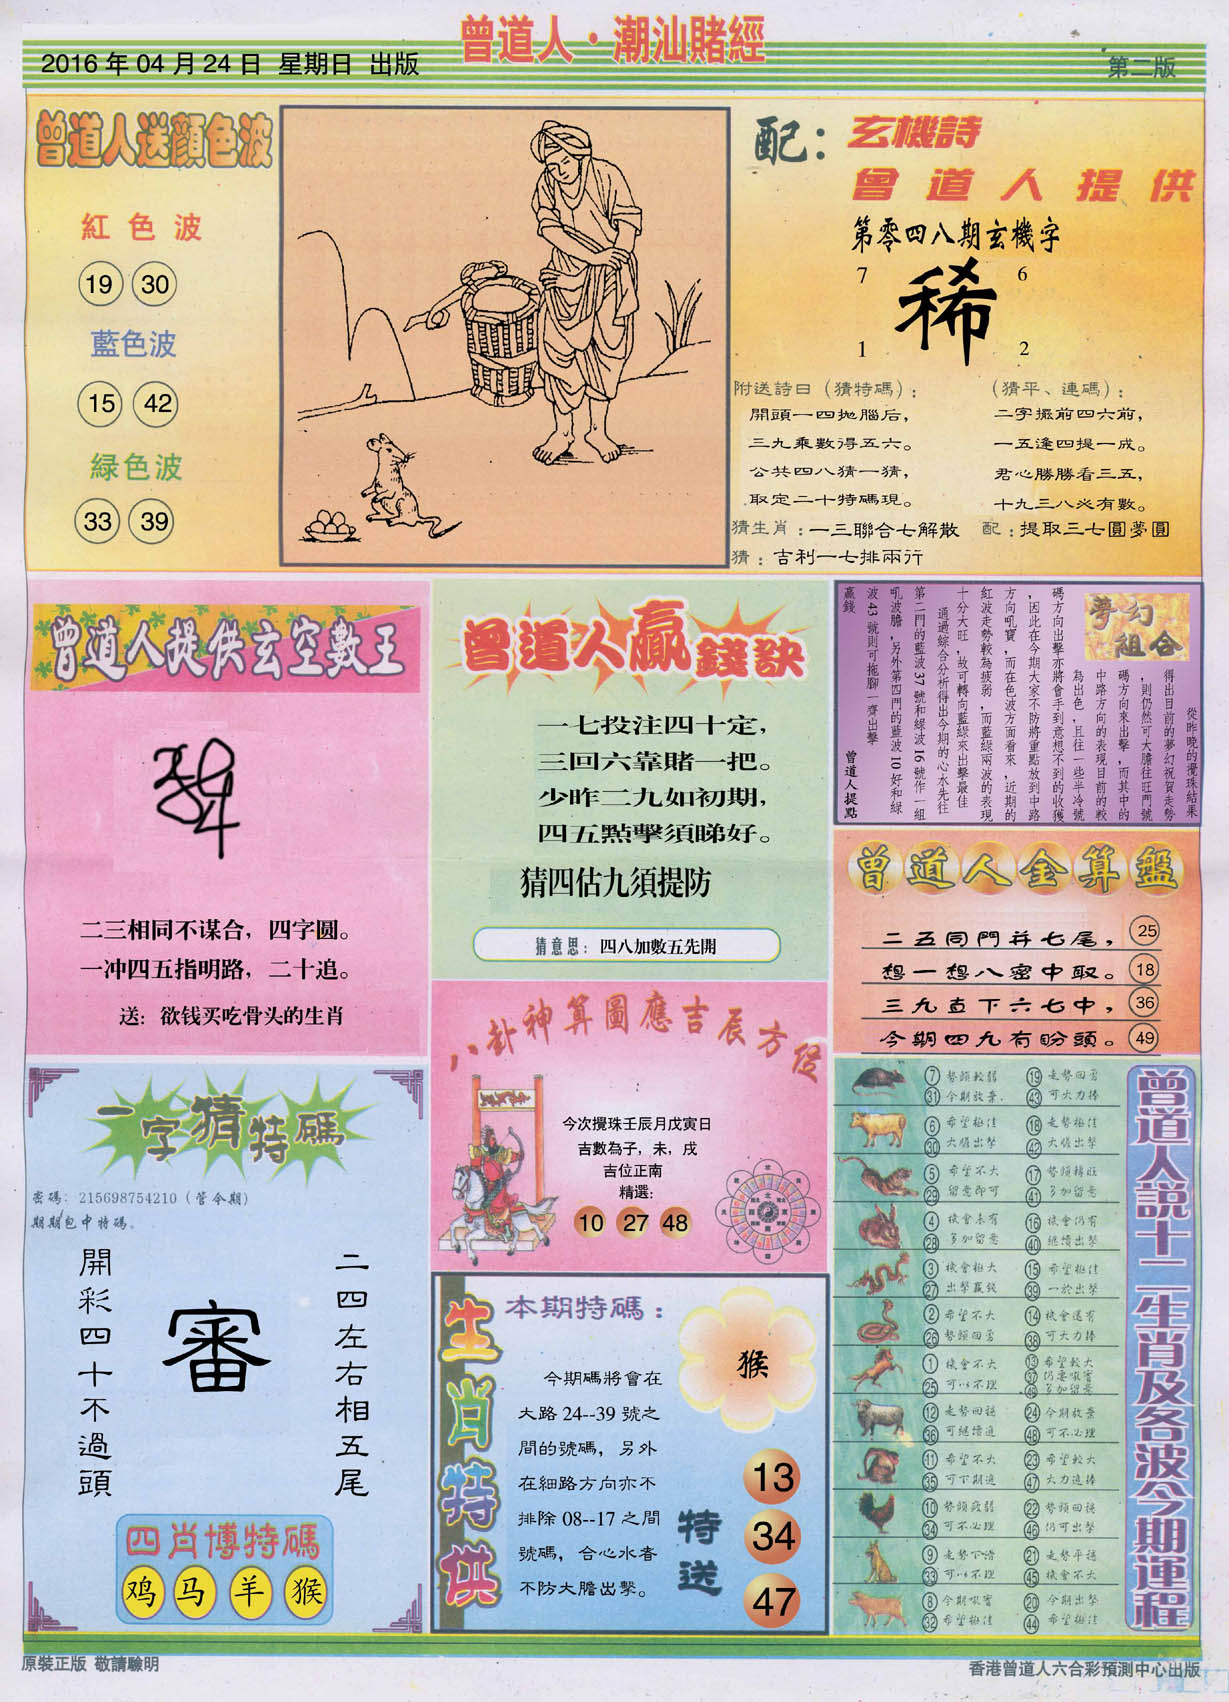 曾道人·潮汕賭經
2016 年 04 月 24 日 星期日 出版
第二版
曾道人送顏色波
紅色波
19 30
藍色波
15 42
緑色波
33 39
配：玄機詩
曾道人提供
第零四八期玄機字
7 6
稀
1 2
附送詩曰（猜特碼）：
開頭一四拋腦后，
三九乘數得五六。
公共四八猜一猜，
取定二十特碼現。
（猜平、連碼）：
二字擺前四六前，
一五逢四提一成。
君心勝勝看三五，
十九三八必有數。
猜生肖：一三聯合七解散 配：提取三七圓夢圓
猜：吉利一七排兩行
曾道人提供玄空數王
二三相同不谋合，四字圆。
一冲四五指明路，二十追。
送：欲钱买吃骨头的生肖
曾道人贏錢訣
一七投注四十定，
三回六靠賭一把。
少昨二九如初期，
四五點擊須睇好。
猜四估九須提防
猜意思：四八加數五先開
夢幻組合
從昨晚的攪珠結果
得出目前的夢幻祝賀走勢
，則仍然可大膽往旺門號
碼方向來出擊，而其中的
中路方向的表現目前的較
為出色，且往一些半冷號
碼方向出擊亦將會手到意想不到的收獲
，因此在今期大家不防將重點放到中路
方向吼寶，而在色波方面看來，近期的
紅波走勢較為疲弱，而藍綠兩波的表現
十分大旺，故可轉向藍綠來出擊最佳
通過綜合分析得出今期的心水先往
第二門的藍波 37 號和綠波 16 號作一組
吼波膽，另外第四門的藍波 10 好和綠
波 43 號則可拖腳一齊出擊
贏錢
曾道人提點
曾道人金算盤
二五同門并七尾， 25
想一想八密中取。 18
三九直下六七中， 36
今期四九有盼頭。 49
八卦神算圖應吉辰方位
今次攪珠壬辰月戊寅日
吉數為子，未，戌
吉位正南
精選：
10 27 48
一字猜特碼
密碼：215698754210（管令期）
期期包中特碼。
二四左右相五尾
審
開彩四十不過頭
四肖博特碼
鸡 马 羊 猴
生肖特供
本期特碼：
猴
今期碼將會在
大路 24--39 號之
間的號碼，另外
在細路方向亦不
排除 08--17 之間
號碼，合心水者
不防大膽出擊。
特送
13
34
47
曾道人說十二生肖及各波今期運程
7 勢頭較弱 19 走勢回勇
31 今期放棄 43 可大力捧
6 希望極佳 18 走勢極佳
30 大膽出擊 42 大膽出擊
5 希望不大 17 勢頭轉旺
29 留意即可 41 多加留意
4 機會未有 16 機會仍有
28 多加留意 40 繼續出擊
3 機會極大 15 希望極佳
27 出擊贏錢 39 一於出擊
2 希望不大 14 機會還有
26 勢頭回勇 38 可大力捧
1 機會不大 13 希望較大
25 可以不理 37 仍要吼實
49 多加留意
12 走勢回穩 24 今期放棄
36 可繼續追 48 可不必理
11 希望不大 23 希望較大
35 可下期追 47 大力追捧
10 勢頭疲弱 22 勢頭回穩
34 可不必理 46 仍可出擊
9 走勢下滑 21 走勢平穩
33 可以不理 45 機會不大
8 今期吼實 20 今期出擊
32 希望極佳 44 希望極佳
原裝正版 敬請驗明
香港曾道人六合彩預測中心出版